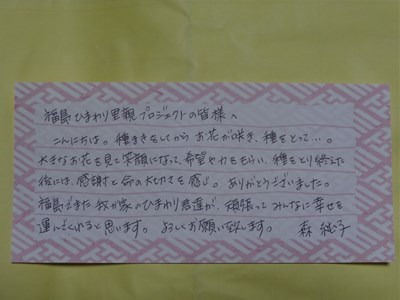 福島ひまわり里親プロジェクトの皆様へ
こんにちは。種まきをしてから お花が咲き、種をとって…。
大きなお花を見て笑顔になって、希望や力をもらい、種をとり終えた
後には、感謝と命の大切さを感じ。ありがとうございました。
福島でまた我が家のひまわり君達が、頑張ってみんなに幸せを
運んでくれると思います。よろしくお願い致します。 森 純子